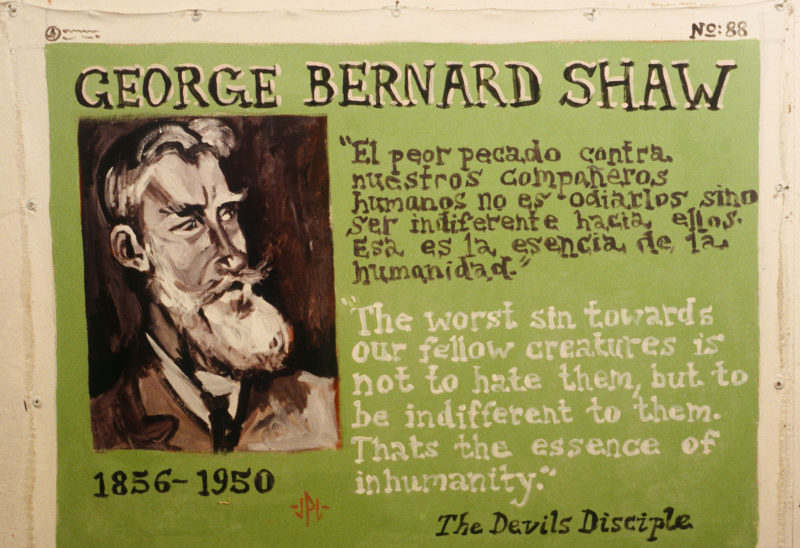 No: 88
GEORGE BERNARD SHAW
"El peor pecado contra
nuestros compañeros
humanos no es odiarlos sino
ser indiferente hacia ellos.
Esa es la esencia de la
humanidad."
"The worst sin towards
our fellow creatures is
not to hate them, but to
be indifferent to them.
Thats the essence of
inhumanity."
1856-1950
-JPL-
The Devils Disciple